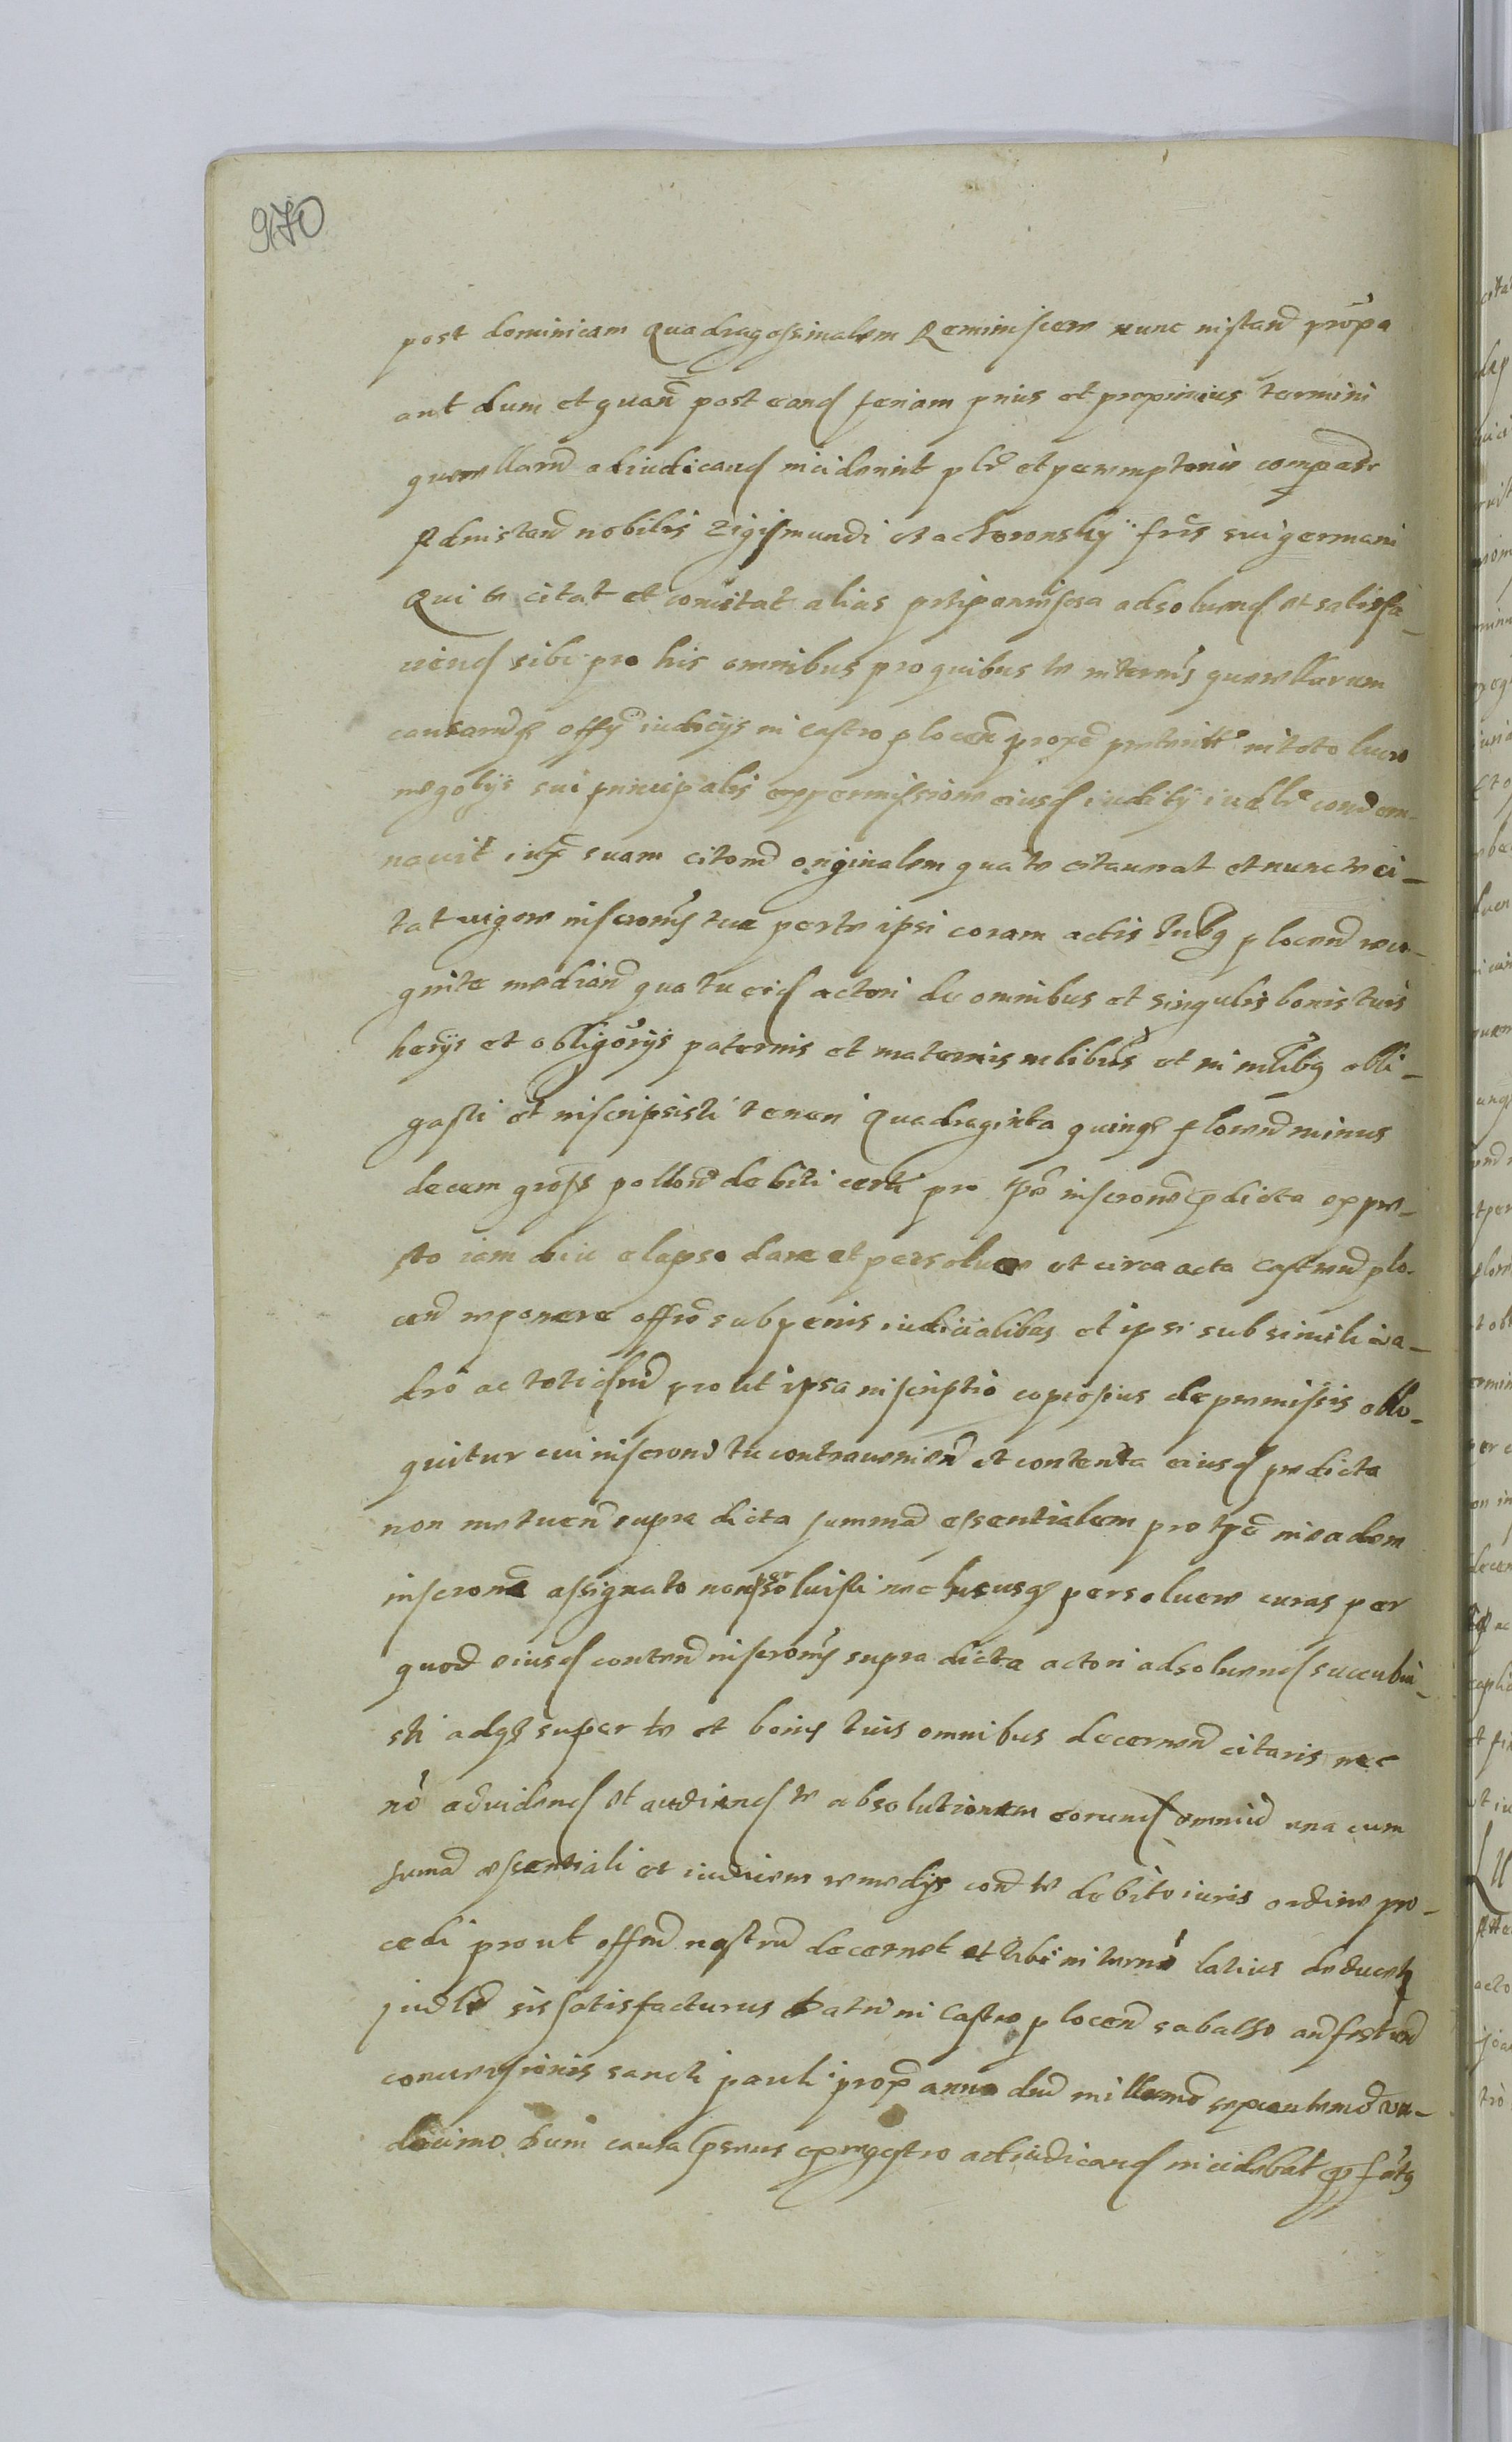 970
post dominicam Quadragesimalem Reminiscere nunc instand prox̃a
aut dum et quan̄ post eand feriam prius et propinius termini
querellarū adiudicand inciderint pl̄r et peremptorie compas̄r
Ad instan̄ nobilis Zigismundi fr̄is sui germani
Qui te citat et conc̄itat alias adsoluend et satisfa-
ciend sibi pro his omnibus pro quibus te in term̄ querellarum
causarūq offÿ iudicÿs in Castro plocen̄ proxe preteritt in toto lucro
negotÿs sui principalis ex permissione eiusd iuditÿ iud̄lr condem-
nauit iux̄ suam citon̄ originalem qua te citauerat et nunc te ci-
tat uigore inscronis tue per te ipsi coram actis plocen̄ reco-
gnite median̄ qua tu eid actori de omnibus et singulis bonis tuis
herÿs et obligorÿs paternis et maternis mlibus et inmlibq obli-
gasti et inscripsisti teneri Quadraginta quinq floren̄ minus
decem gross pollon̄ debiti certi pro tp̄e inscrone p̄dicta expre-
sso iam diu elapso dare et persoluere et circa acta Castren̄ plo-
cen̄ reponere offrō sub penis iudicialibus et ipsi sub simili ua-
dio ac totid̄ prout ipsa inscriptio copiosius de premissis ollo-
quitur cui inscroni tu contraueniend et contenta eiusd predicta
non metuen̄ supra dicta summā essentialem pro tp̄e in eadem
inscrone assignato non persoluisti nec husus persoluere curas per
quod eiusd conten̄ inscronis supra dicta actori adsoluend succubui-
sti adq super te et bonis tuis omnibus decernen̄ citaris nec
nō aduidend et audiend te absolutionem eorund omniū una cum
sumā essentiali et iudiciens remedÿs con̄ te debito iuris ordine pro-
cedi prout offm̄ nostrū decernet et tibi in termō latius deducetq
iudlr̄ sis satisfacturus Datū in Castro plocen̄ sabatho an̄ festum
conuersionis sancti pauli prox̄ anno dnī millemō sexcentemō un-
decimo dum causa psens ex registro adiudicand incidebat